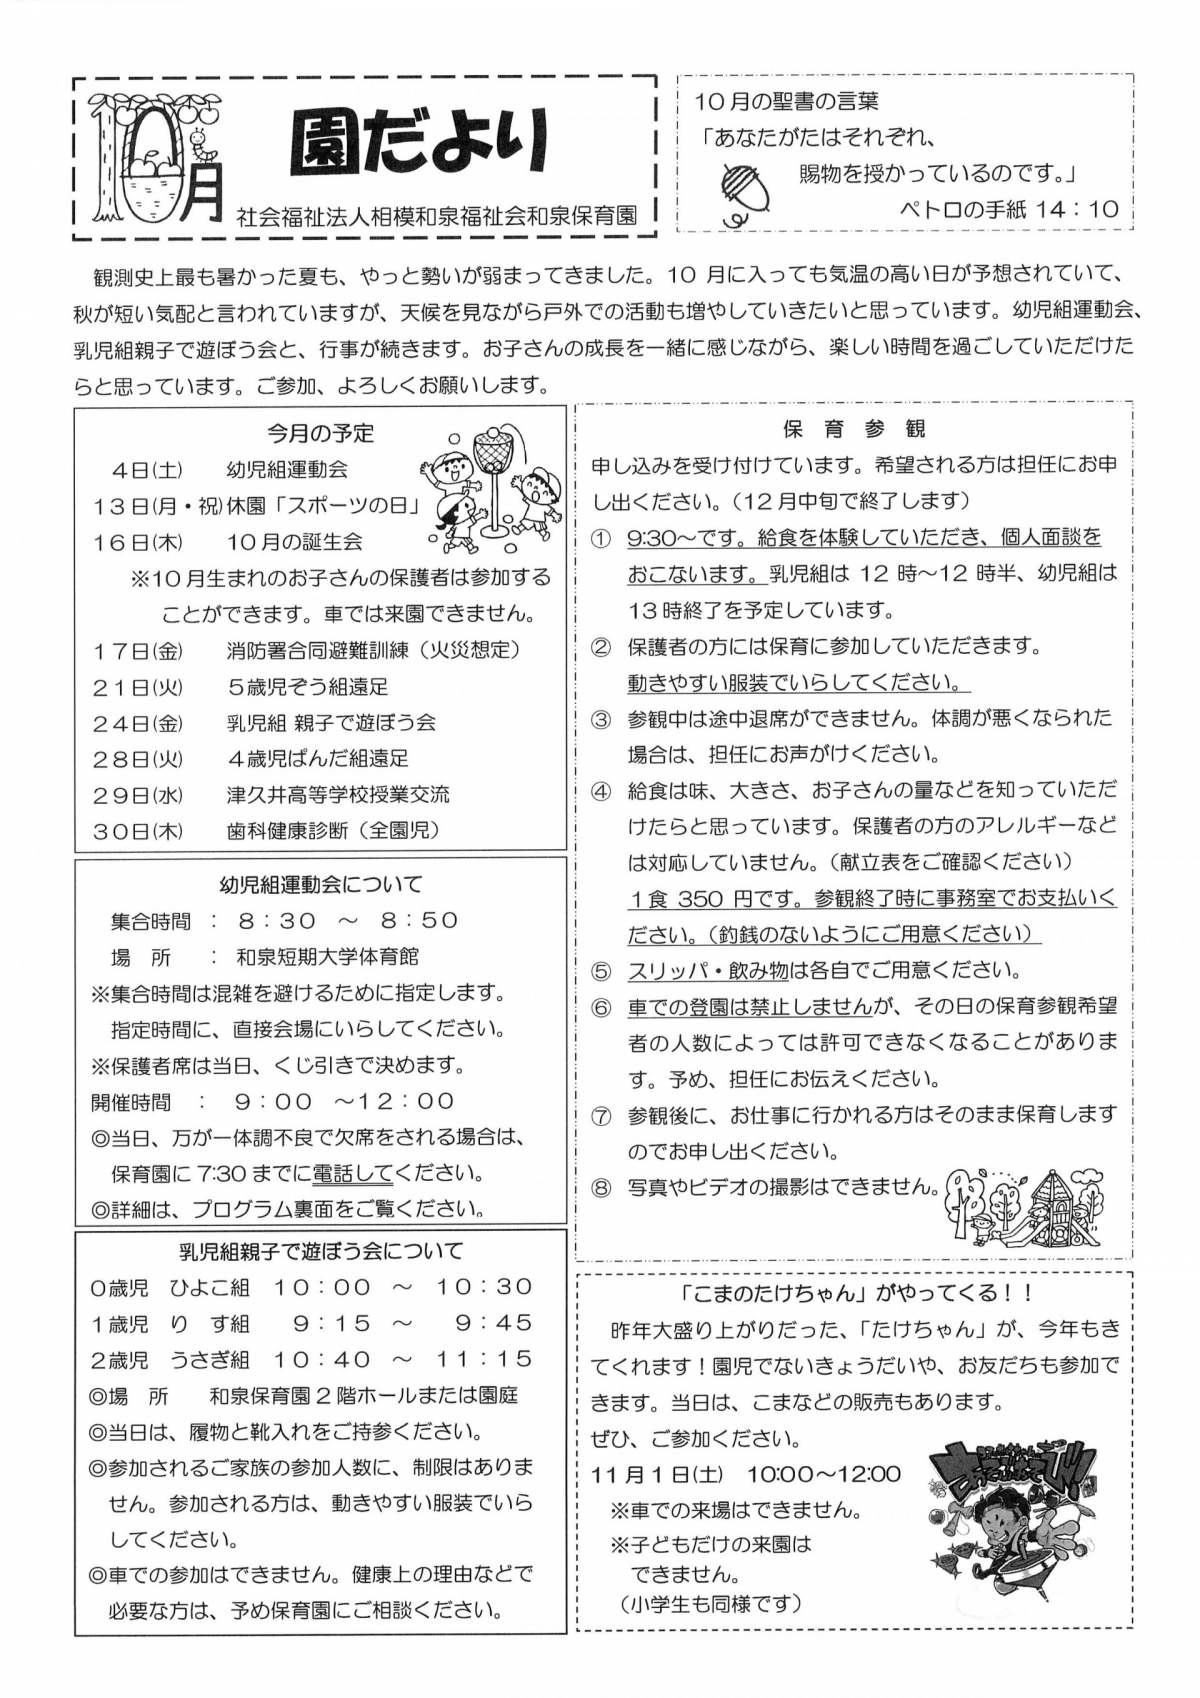 10月
園だより
社会福祉法人相模和泉福祉会和泉保育園
10月の聖書の言葉
「あなたがたはそれぞれ、
賜物を授かっているのです。」
ペトロの手紙 14：10
観測史上最も暑かった夏も、やっと勢いが弱まってきました。10 月に入っても気温の高い日が予想されていて、
秋が短い気配と言われていますが、天候を見ながら戸外での活動も増やしていきたいと思っています。幼児組運動会、
乳児組親子で遊ぼう会と、行事が続きます。お子さんの成長を一緒に感じながら、楽しい時間を過ごしていただけた
らと思っています。ご参加、よろしくお願いします。
今月の予定
4日(土)　幼児組運動会
13日(月・祝)休園「スポーツの日」
16日(木)　10月の誕生会
※10月生まれのお子さんの保護者は参加する
ことができます。車では来園できません。
17日(金)　消防署合同避難訓練（火災想定）
21日(火)　5歳児ぞう組遠足
24日(金)　乳児組 親子で遊ぼう会
28日(火)　4歳児ぱんだ組遠足
29日(水)　津久井高等学校授業交流
30日(木)　歯科健康診断（全園児）
幼児組運動会について
集合時間　：　8：30　～　8：50
場　所　　：　和泉短期大学体育館
※集合時間は混雑を避けるために指定します。
指定時間に、直接会場にいらしてください。
※保護者席は当日、くじ引きで決めます。
開催時間　：　9：00　～12：00
◎当日、万が一体調不良で欠席をされる場合は、
保育園に 7:30 までに電話してください。
◎詳細は、プログラム裏面をご覧ください。
乳児組親子で遊ぼう会について
0歳児　ひよこ組　10：00　～　10：30
1歳児　り　す組　9：15　～　9：45
2歳児　うさぎ組　10：40　～　11：15
◎場　所　　和泉保育園2階ホールまたは園庭
◎当日は、履物と靴入れをご持参ください。
◎参加されるご家族の参加人数に、制限はありま
せん。参加される方は、動きやすい服装でいら
してください。
◎車での参加はできません。健康上の理由などで
必要な方は、予め保育園にご相談ください。
保　育　参　観
申し込みを受け付けています。希望される方は担任にお申
し出ください。（12月中旬で終了します）
① 9:30～です。給食を体験していただき、個人面談を
おこないます。乳児組は 12 時～12 時半、幼児組は
13時終了を予定しています。
② 保護者の方には保育に参加していただきます。
動きやすい服装でいらしてください。
③ 参観中は途中退席ができません。体調が悪くなられた
場合は、担任にお声がけください。
④ 給食は味、大きさ、お子さんの量などを知っていただ
けたらと思っています。保護者の方のアレルギーなど
は対応していません。（献立表をご確認ください）
1食 350 円です。参観終了時に事務室でお支払いく
ださい。（釣銭のないようにご用意ください）
⑤ スリッパ・飲み物は各自でご用意ください。
⑥ 車での登園は禁止しませんが、その日の保育参観希望
者の人数によっては許可できなくなることがありま
す。予め、担任にお伝えください。
⑦ 参観後に、お仕事に行かれる方はそのまま保育します
のでお申し出ください。
⑧ 写真やビデオの撮影はできません。
「こまのたけちゃん」がやってくる！！
昨年大盛り上がりだった、「たけちゃん」が、今年もき
てくれます！園児でないきょうだいや、お友だちも参加で
きます。当日は、こまなどの販売もあります。
ぜひ、ご参加ください。
11月1日(土)　10:00～12:00
※車での来場はできません。
※子どもだけの来園は
できません。
（小学生も同様です）